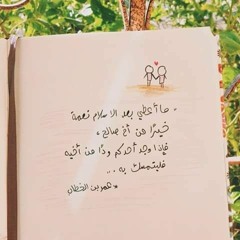 ما أعطي بعد الاسلام نعمة
خيرًا من أخ صالح ،
فإذا وجد أحدكم ودًا من أخيه
فليتمسك به ..
عمر بن الخطاب